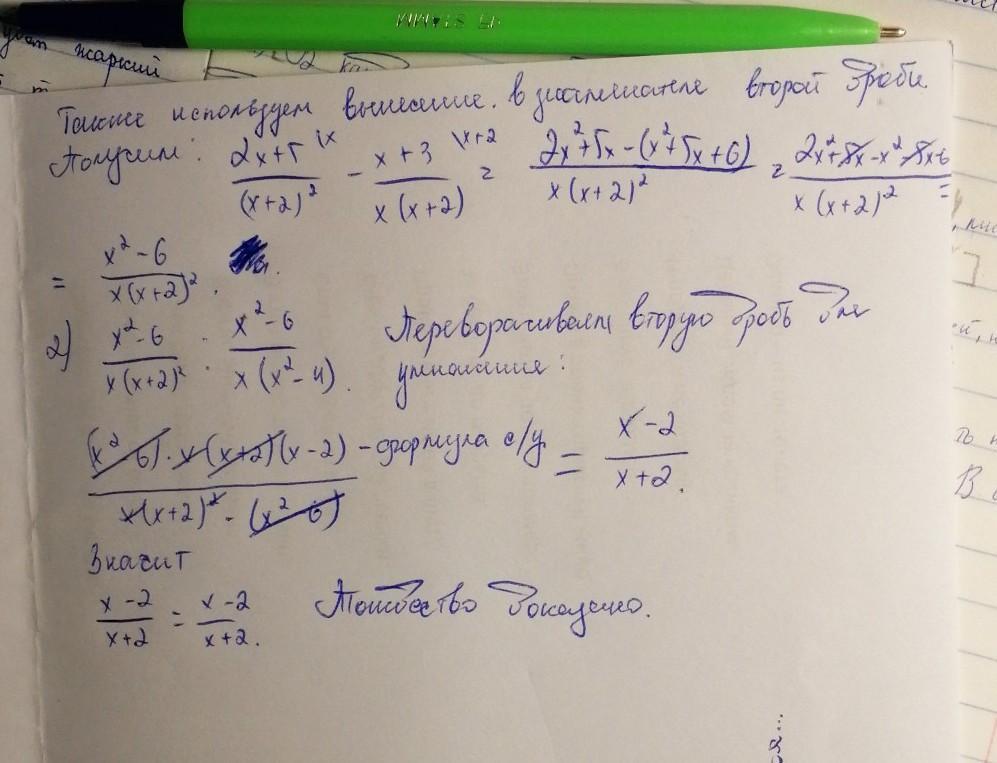 жаркий
Также используем вынесение. в знаменателе второй дроби.
Получим: (2x+5)/(x+2)² \x - (x+3)/(x(x+2)) \x+2 = (2x²+5x-(x²+5x+6))/(x(x+2)²) = (2x²+5x-x²-5x-6)/(x(x+2)²) =
= (x²-6)/(x(x+2)²).
2) (x²-6)/(x(x+2)²) : (x²-6)/(x(x²-4)). Переворачиваем вторую дробь для
умножения:
((x²-6)·x(x+2)(x-2))/(x(x+2)²·(x²-6)) - формула с/у = (x-2)/(x+2).
Значит
(x-2)/(x+2) = (x-2)/(x+2). Тождество доказано.